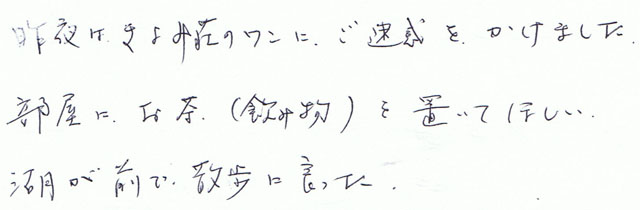 昨夜は、きよみ荘のワンに、ご迷惑を、かけました。
部屋に、お茶、(飲み物)を置いてほしい。
湖が前で、散歩に良った。